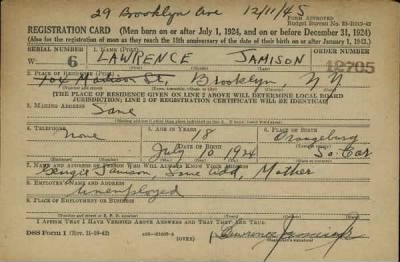 29 Brooklyn Ave 12/11/45
REGISTRATION CARD (Men born on or after July 1, 1924, and on or before December 31, 1924)
FORM APPROVED
(Also for the registration of men as they reach the 18th anniversary of the date of their birth on or after January 1, 1943.)
SERIAL NUMBER 1. NAME (Print) ORDER NUMBER
W 6 LAWRENCE JAMISON 12705
2. PLACE OF RESIDENCE (Print)
Madison St, Brooklyn N Y
[THE PLACE OF RESIDENCE GIVEN ON LINE 2 ABOVE WILL DETERMINE LOCAL BOARD
JURISDICTION; LINE 2 OF REGISTRATION CERTIFICATE WILL BE IDENTICAL]
3. MAILING ADDRESS
Same
4. TELEPHONE 5. AGE IN YEARS 6. PLACE OF BIRTH
None 18 Orangeburg
DATE OF BIRTH
July 10 1924 So. Car
7. NAME AND ADDRESS OF PERSON WHO WILL ALWAYS KNOW YOUR ADDRESS
Jamison, Same add, Mother
8. EMPLOYER'S NAME AND ADDRESS
Unemployed
9. PLACE OF EMPLOYMENT OR BUSINESS
I AFFIRM THAT I HAVE VERIFIED ABOVE ANSWERS AND THAT THEY ARE TRUE.
DSS Form 1 (Rev. 11-16-42) (OVER) Lawrence Jamison